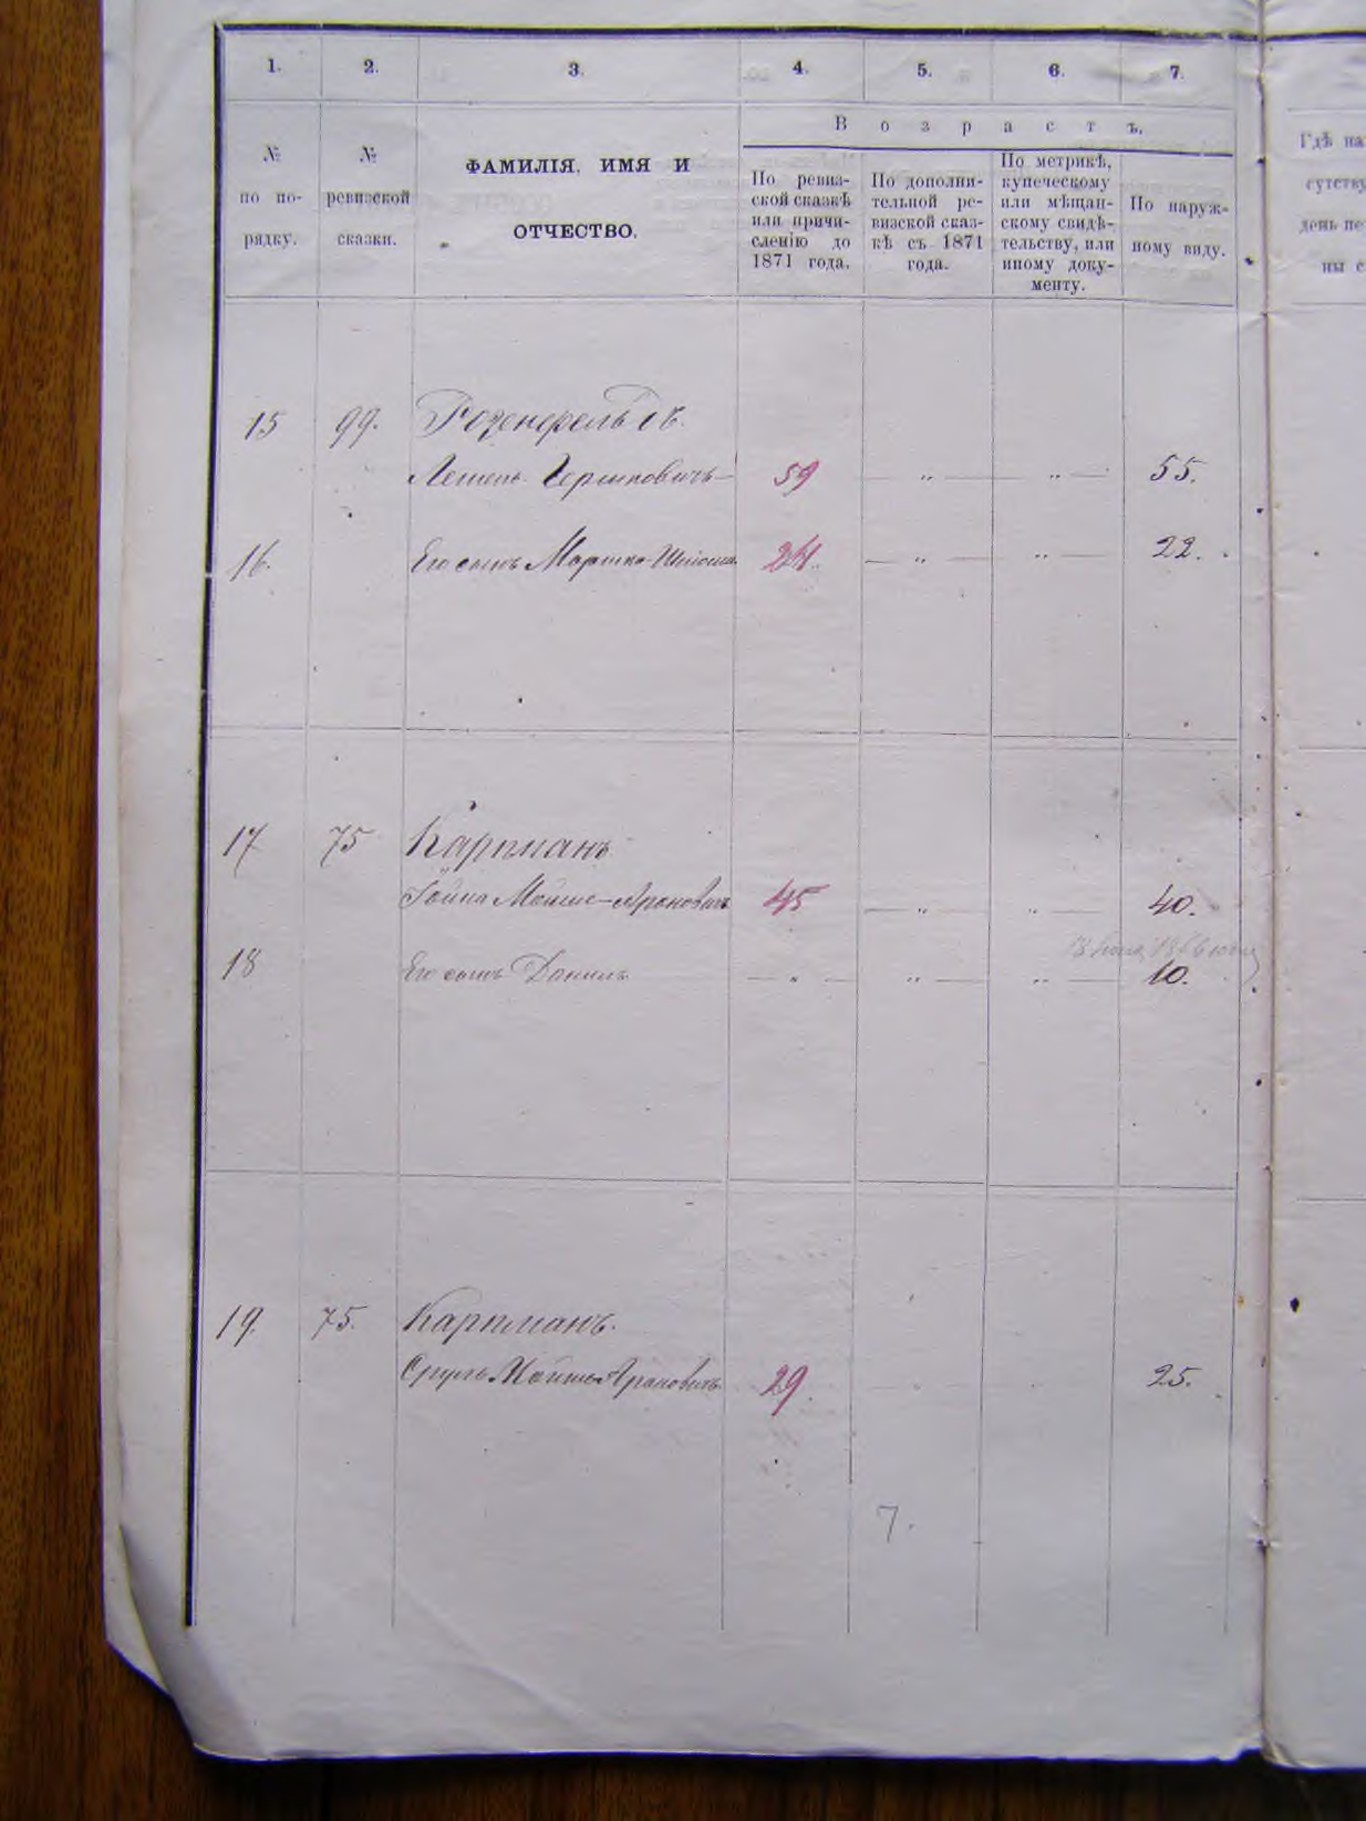 1. 2. 3. 4. 5. 6. 7.
№ по порядку.
№ ревизской сказки.
ФАМИЛІЯ, ИМЯ И
ОТЧЕСТВО.
Возрастъ.
По ревиз-
ской сказкѣ
или причи-
сленію до
1871 года.
По дополни-
тельной ре-
визской сказ-
кѣ съ 1871
года.
По метрикѣ,
купеческому
или мѣщан-
скому свидѣ-
тельству, или
иному доку-
менту.
По наруж-
ному виду.
Гдѣ на
сутству
день пе
ны с
15 99. Розенфельдъ.
Гершковичъ — 59 — „ — „ — 55.
16. Его сынъ Мошко 24. — „ — „ — 22.
17 75 Картманъ
Мойше-Ароновичъ 45 — „ — „ — 40.
18 Его сынъ Данилъ — „ — „ — „ — 10.
19. 75. Картманъ.
Сруль Мойше-Ароновичъ. 29. 25.
7.